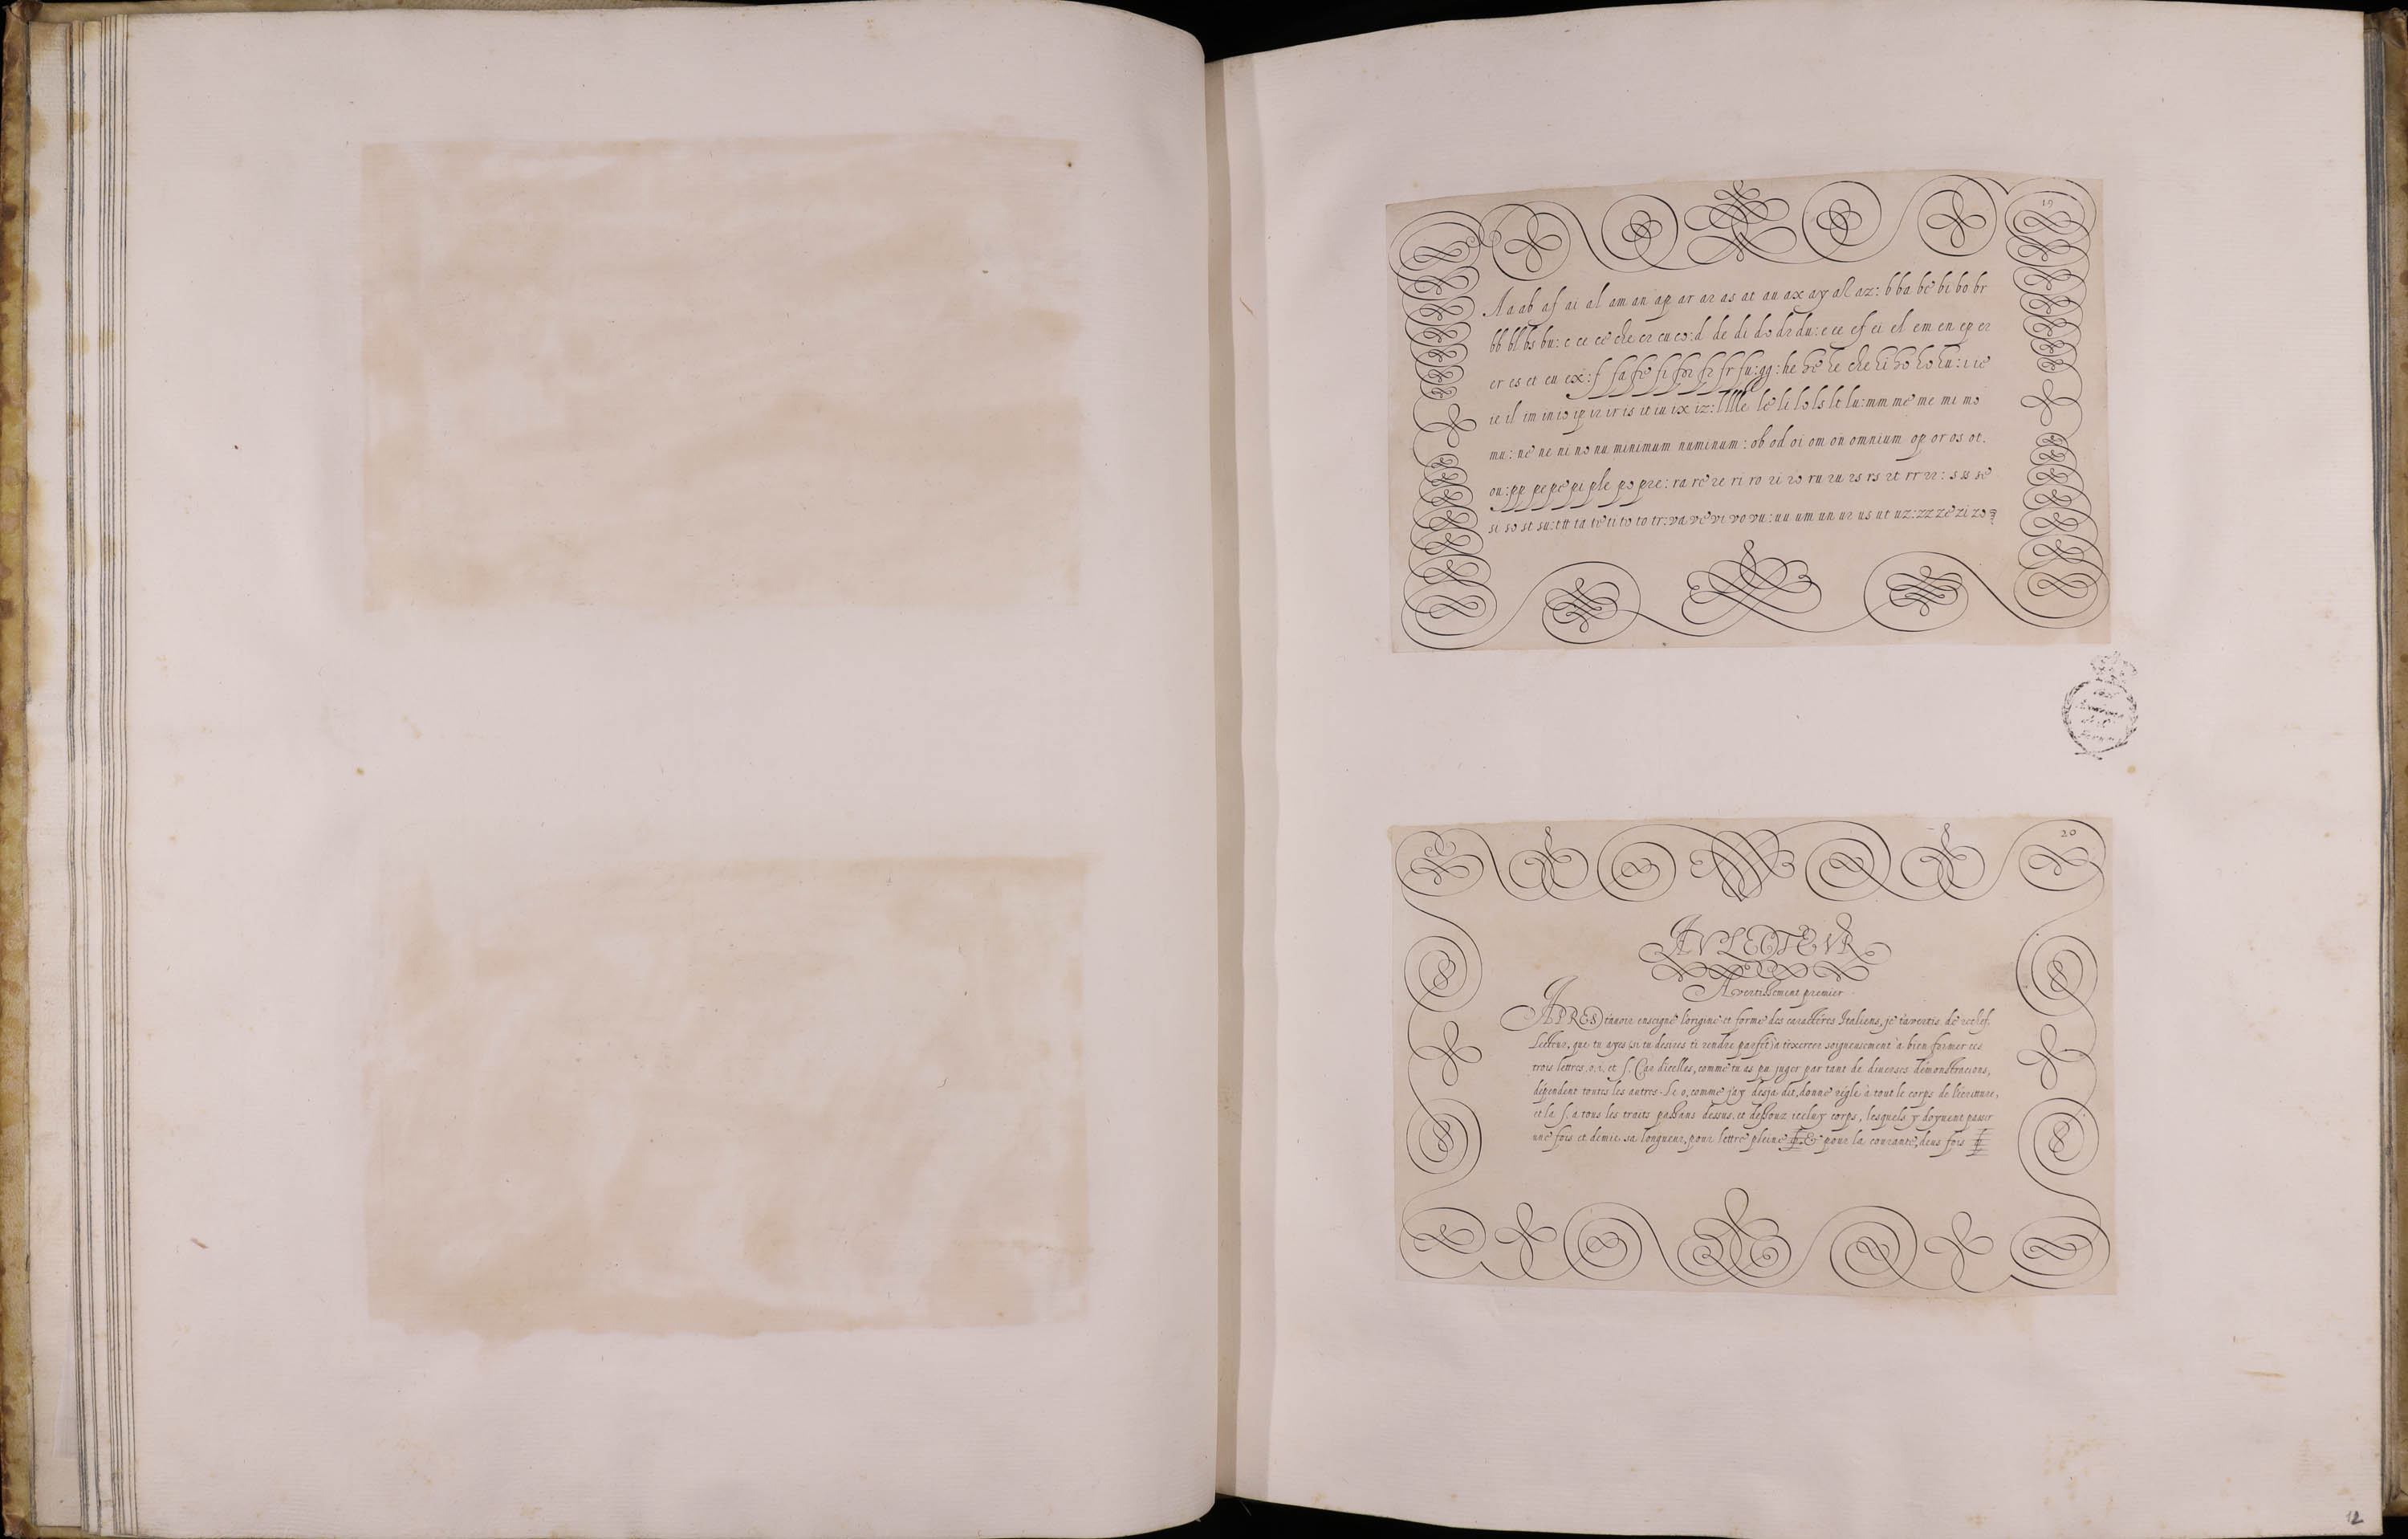 19
A a ab af ai al am an ap ar ar as at au ax ay al az: b ba be bi bo br
bb bl bs bu: c ce ce che cr cu co: d de di do dr du: e ee ef ei el em en ep er
er es et eu ex: f fa fe fi for fr fr fu: gg: he he he che hi ho ho hu: i ie
ie il im in io ip ir ir is it iu ix iz: l lle le li lo ls lt lu: mm me me mi mo
mu: ne ne ni no nu minimum numinum: ob od oi om on omnium op or os ot.
ou: pp pe pe pi ple po pre: ra re re ri ro ri ro ru ru rs rs rt rr rr: s ss se
si so st su: ttt ta te ti to to tr: va ve vi vo vu: uu um un ur us ut uz: zz ze zi zo
20
AV LECTEVR
Avertissement premier
APRES t'avoir enseigné l'origine et forme des caractères Italiens, je t'avertis de rechef,
Lecteur, que tu ayes (si tu desires te rendre parfet) a t'exercer soigneusement à bien former ces
trois lettres, o. i. et ſ. Car d'icelles, comme tu as pu juger par tant de diuerses démonstracions,
dépendent toutes les autres. Le o, comme j'ay desja dit, donne règle à tout le corps de l'écritture,
et la ſ, a tous les traits passans dessus, et dessouz iceluy corps, lesquels y doyuent passer
une fois et demie, sa longueur, pour lettre pleine & pour la courante, deus fois
12